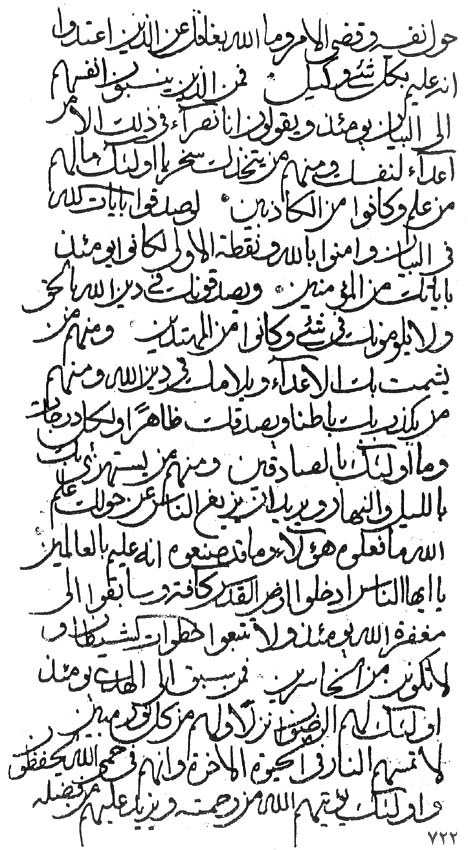 حول نفسه وقضی الامر وما الله بغافل عن الذین اعتدوا
انه علیم بکل شئ وکیل فمن الذین ینسبون انفسهم
الی البیان یومئذ ویقولون انا نقرآء فی ذلک الامر
اعدآء لنفسک ومنهم من یتخذک سخریا اولئک مالهم
من علم وکانوا من الکاذبین لو صدقوا بایات الله
فی البیان وامنوا بالله ونقطة الاولی لکانوا یومئذ
بایاتک من المؤمنین ویصدقونک فی دین الله بالحق
ولا یلومونک فی شئ وکانوا من المهتدین ومنهم من
یشمت بک الاعدآء ویلامک فی دین الله ومنهم
من یکذب بک باطنا ویصدقک ظاهرًا ولکل درجات
وما اولئک بالصادقین ومنهم من یستهزئ بک
باللیل والنهار ویرید ان یزیع الناس عن حولک علم
الله ما فعلوه هؤلآء وما قد صنعوه انه علیم بالعالمین
یا ایها الناس ادخلوا ارض القدس کافة وسابقوا الی
مغفرة الله یومئذ ولا تتبعوا خطوات الشیطان و
لا تکونن من الخاسرین فمن سبق الی الهدی یومئذ
اولئک لهم الرضوان نزلًا ولهم من کل
لا تمسهم النار فی الحیوة الاخرة وانهم فی حمی الله یحفظون
و اولئک یؤتیهم الله من رحمته ویزید علیهم من فضله
۷۲۲